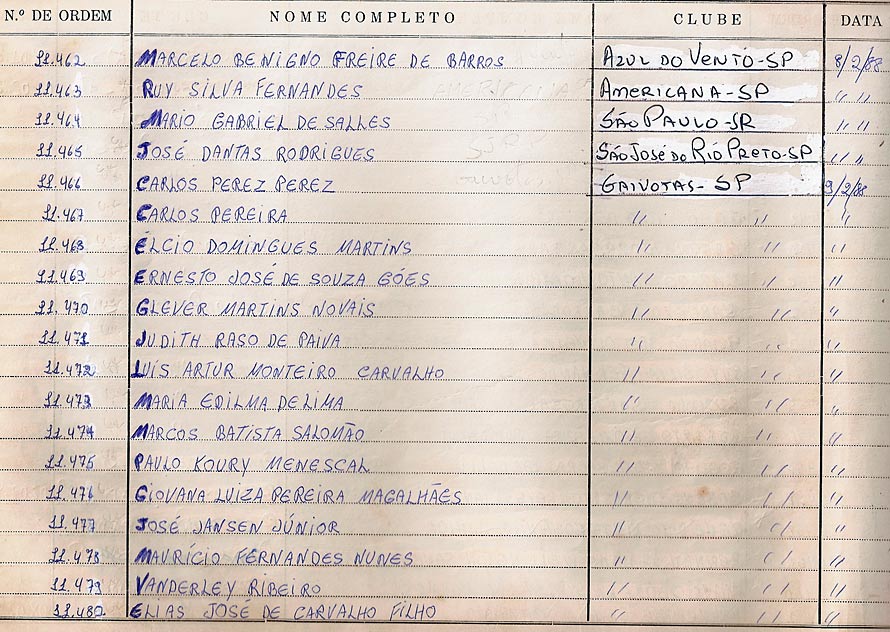 N.º DE ORDEM NOME COMPLETO CLUBE DATA
11.462 MARCELO BENIGNO FREIRE DE BARROS AZUL DO VENTO-SP 8/2/88
11.463 RUY SILVA FERNANDES AMERICANA-SP " "
11.464 MARIO GABRIEL DE SALLES SÃO PAULO-SP " "
11.465 JOSÉ DANTAS RODRIGUES SÃO JOSÉ DO RIO PRETO-SP " "
11.466 CARLOS PEREZ PEREZ GAIVOTAS-SP 9/2/88
11.467 CARLOS PEREIRA " " "
11.468 ÉLCIO DOMINGUES MARTINS " " "
11.469 ERNESTO JOSÉ DE SOUZA GÓES " " "
11.470 GLEVER MARTINS NOVAIS " " "
11.471 JUDITH RASO DE PAIVA " " "
11.472 LUÍS ARTUR MONTEIRO CARVALHO " " "
11.473 MARIA EDILMA DE LIMA " " "
11.474 MARCOS BATISTA SALOMÃO " " "
11.475 PAULO KOURY MENESCAL " " "
11.476 GIOVANA LUIZA PEREIRA MAGALHÃES " " "
11.477 JOSÉ JANSEN JÚNIOR " " "
11.478 MAURÍCIO FERNANDES NUNES " " "
11.479 VANDERLEY RIBEIRO " " "
11.480 ELIAS JOSÉ DE CARVALHO FILHO " " "